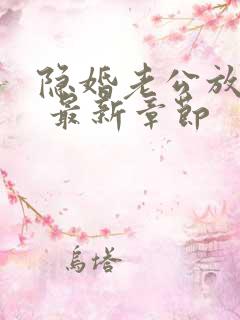 隐婚老公放
最新章节
乌塔